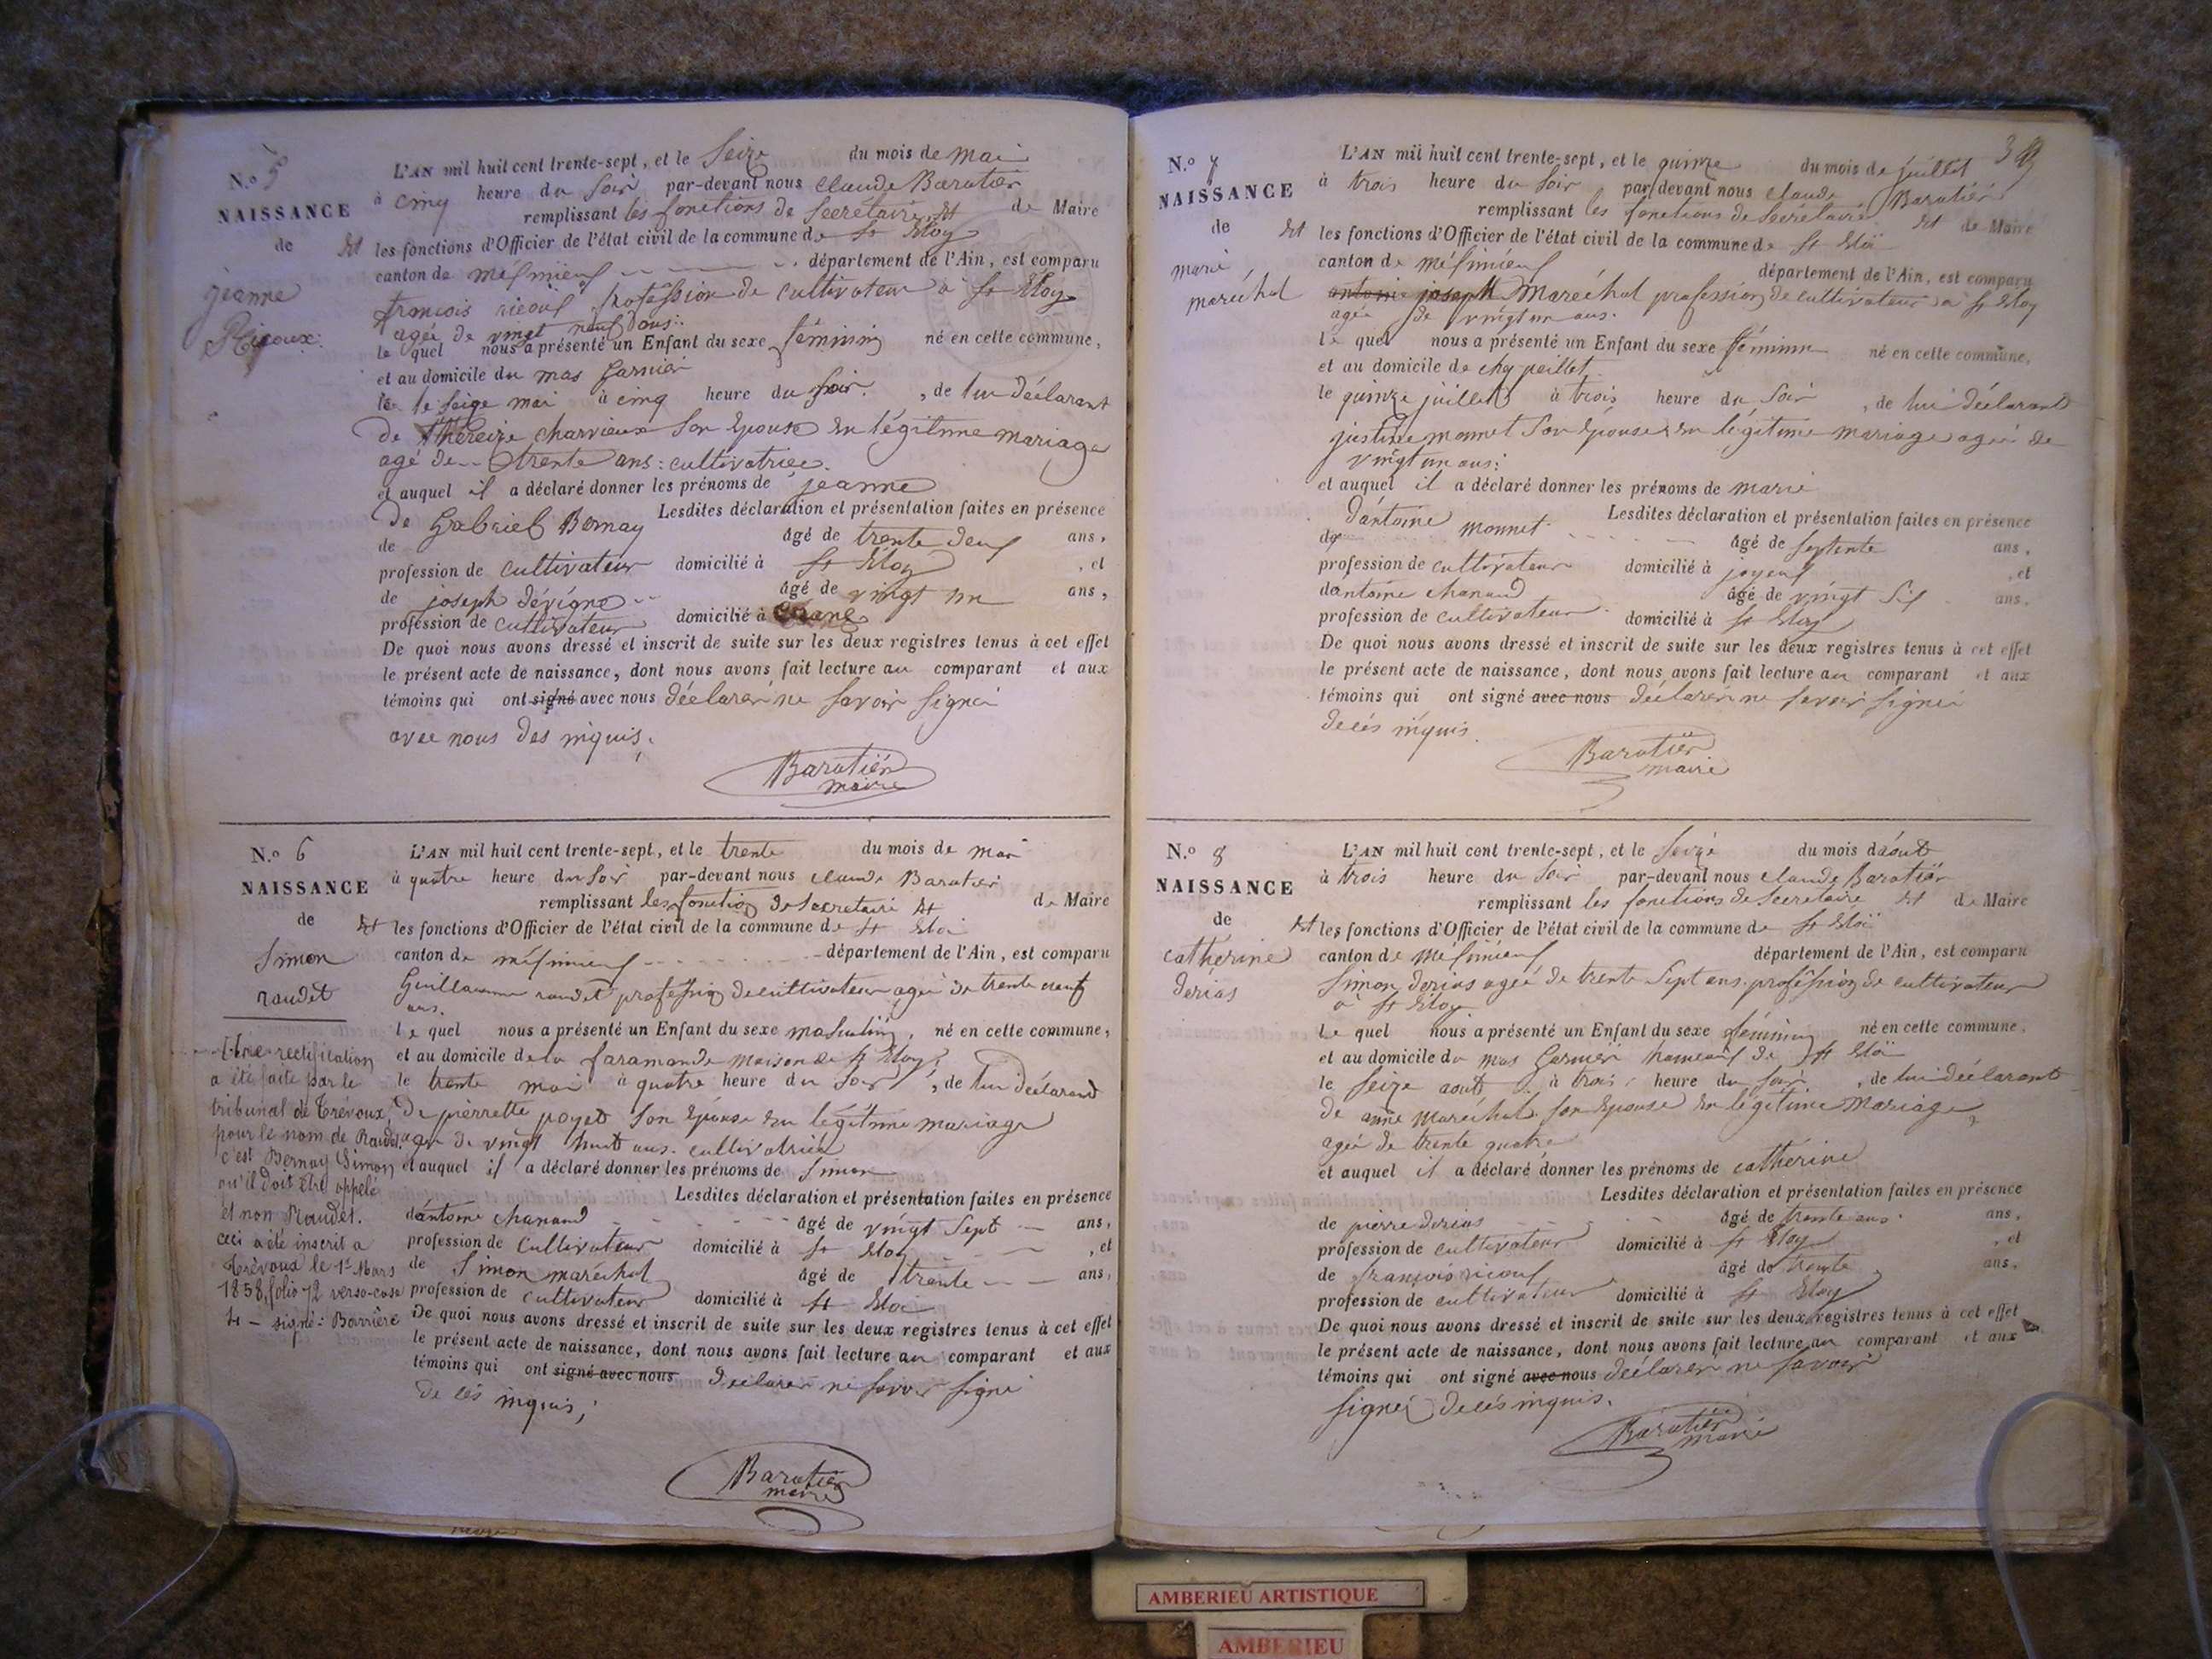 N.o 5
NAISSANCE
de
jeanne
Ricoux
L'AN mil huit cent trente-sept, et le seize du mois de mai
à cinq heure du soir par-devant nous claude Baratier
remplissant les fonctions de secretaire et de Maire
et les fonctions d'Officier de l'état civil de la commune de st Eloy
canton de mésimieux département de l'Ain, est comparu
francois ricoux profession de cultivateur a st Eloy
agée de vingt neuf ans
le quel nous a présenté un Enfant du sexe féminin né en cette commune,
et au domicile du mas Garnier
le seize mai à cinq heure du soir, de lui déclarant
de thereize charvieux son épouse en légitime mariage
agé de trente ans cultivatrice
et auquel il a déclaré donner les prénoms de jeanne
Lesdites déclaration et présentation faites en présence
de Gabriel Bernay
de âgé de trente deux ans,
profession de cultivateur domicilié à st Eloy, et
de joseph dévigne âgé de vingt un ans,
profession de cultivateur domicilié à
De quoi nous avons dressé et inscrit de suite sur les deux registres tenus à cet effet
le présent acte de naissance, dont nous avons fait lecture au comparant et aux
témoins qui ont signé avec nous déclarer ne savoir signer
avec nous des inquis.
Baratier
maire
N.o 6
NAISSANCE
de
Simon
raudet
L'AN mil huit cent trente-sept, et le trente du mois de mai
à quatre heure du soir par-devant nous claude Baratier
remplissant les fonction de secretaire et de Maire
et les fonctions d'Officier de l'état civil de la commune de st Eloi
canton de mésimieux département de l'Ain, est comparu
Guillaume raudet profession de cultivateur agée de trente neuf
ans.
le quel nous a présenté un Enfant du sexe masculin, né en cette commune,
et au domicile de la faramande maison de st Eloy
le trente mai à quatre heure du soir, de lui déclarant
de pierrette poyet son épouse en légitime mariage
agée de vingt huit ans cultivatrice
et auquel il a déclaré donner les prénoms de Simon
Lesdites déclaration et présentation faites en présence
dantoine chanand âgé de vingt sept ans,
profession de cultivateur domicilié à st Eloy, et
de Simon maréchal âgé de trente ans,
profession de cultivateur domicilié à st Eloi
De quoi nous avons dressé et inscrit de suite sur les deux registres tenus à cet effet
le présent acte de naissance, dont nous avons fait lecture au comparant et aux
témoins qui ont signé avec nous declarer ne savoir signe
de cés inquis;
Baratier
maire
Une rectification
a été faite par le
tribunal de Trévoux,
pour le nom de Raudet.
c'est Bernay Simon
qu'il doit être appelé
et non Raudet.
ceci a été inscrit a
Trévoux le 1er Mars
1858, folio 72 verso-case
4 - signé: Barrière
3
N.o 7
NAISSANCE
de
marie
maréchal
L'AN mil huit cent trente-sept, et le quinze du mois de juillet
à trois heure du soir par-devant nous claude Baratier
remplissant les fonctions de secretaire et de Maire
et les fonctions d'Officier de l'état civil de la commune de st Eloi
canton de mésimieux département de l'Ain, est comparu
antoine joseph Maréchal profession de cultivateur a st Eloy
agée de vingt un ans.
le quel nous a présenté un Enfant du sexe féminin né en cette commune,
et au domicile de
le quinze juillet à trois heure du soir, de lui déclarant
justine monnet son épouse en légitime mariage ageé de
vingt un ans;
et auquel il a déclaré donner les prénoms de marie
Lesdites déclaration et présentation faites en présence
dantoine monnet âgé de septente ans,
profession de cultivateur domicilié à joyeux, et
dantoine chanand âgé de vingt six ans,
profession de cultivateur domicilié à st Eloy
De quoi nous avons dressé et inscrit de suite sur les deux registres tenus à cet effet
le présent acte de naissance, dont nous avons fait lecture au comparant et aux
témoins qui ont signé avec nous déclarer ne savoir signer
de cés inquis.
Baratier
maire
N.o 8
NAISSANCE
de
catherine
derias
L'AN mil huit cent trente-sept, et le seize du mois daout
à trois heure du soir par-devant nous claude Baratier
remplissant les fonctions de secretaire et de Maire
et les fonctions d'Officier de l'état civil de la commune de st Eloi
canton de Mésimieux département de l'Ain, est comparu
Simon derias agée de trente sept ans profession de cultivateur
à st Eloy
le quel nous a présenté un Enfant du sexe féminin né en cette commune,
et au domicile du mas Garnier hameaux de st Eloi
le seize aout à trois heure du soir, de lui déclarant
de anne Maréchal son épouse en légitime mariage
agée de trente quatre
et auquel il a déclaré donner les prénoms de catherine
Lesdites déclaration et présentation faites en présence
de pierre derias âgé de trente ans ans,
profession de cultivateur domicilié à st Eloy, et
de françois ricoux âgé de trente ans,
profession de cultivateur domicilié à st Eloy
De quoi nous avons dressé et inscrit de suite sur les deux registres tenus à cet effet
le présent acte de naissance, dont nous avons fait lecture au comparant et aux
témoins qui ont signé avec nous déclarer ne savoir
signer de cés inquis.
Baratier
maire
AMBERIEU ARTISTIQUE
AMBERIEU